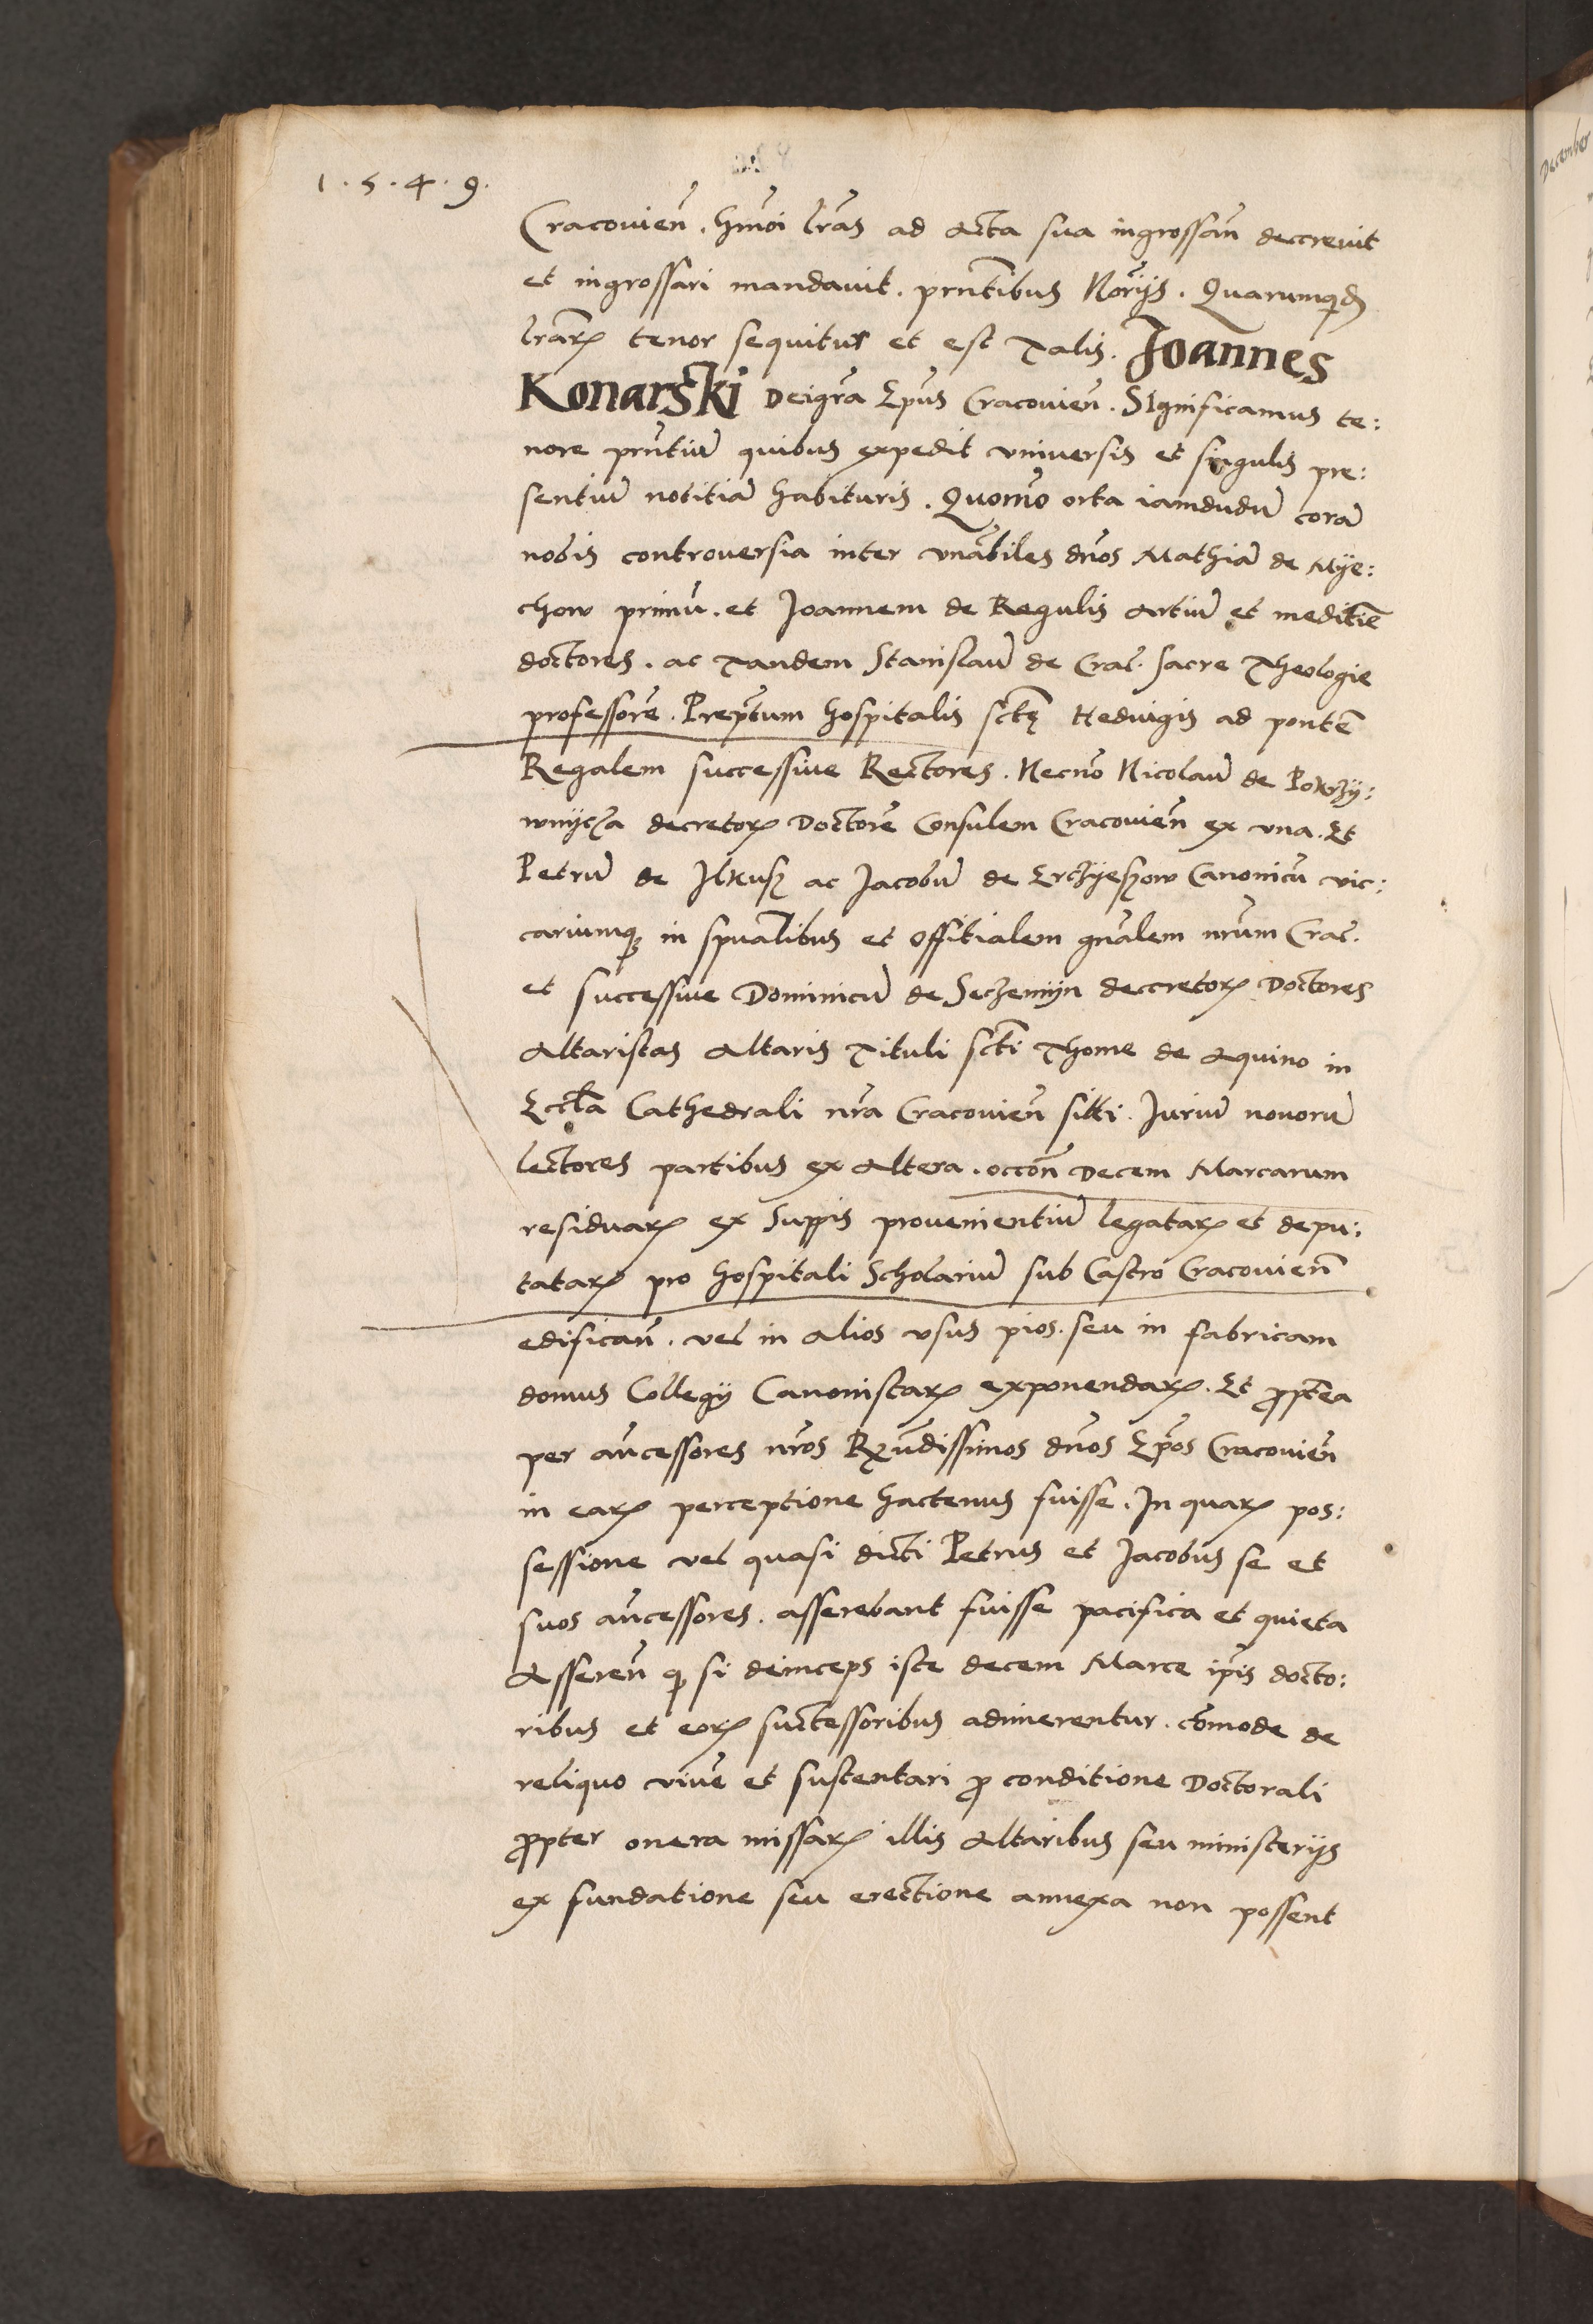 1.5.4.9.
Cracovien̄. hm̄oi lr̄as ad Acta sua ingrossan̄ decrevit
et ingrossari mandavit. prn̄tibus Nor̄ijs. Quarumqd̄
lr̄arꝝ tenor sequitur et est talis. Joannes
Konarski Dei gr̄a Ep̄us Cracovien̄. SIgnificamus te:
nore prn̄tiū quibus expedit vniversis et singulis pre:
sentiū notitiā habituris. Quom̄o orta iamdudū corā
nobis controversia inter vn̄abiles dn̄os Mathiā de Mije:
chow primū. et Joannem de Regulis Artiū et meditiē
doctores. ac tandem Stanislaū de Crac̄. sacre Theologie
professorē. Prep̄tum hospitalis sctę Hedvigis ad pontē
Regalem successive Rectores. Necnō Nicolaū de Pokrzy:
wnijcza decretorꝝ Doctorē Consulem Cracovien̄ ex vna. Et
Petrū de Jlkusz ac Jacobū de Erczijeszow Canonicū vic:
cariumqꝫ in spūalibus et offitialem gn̄alem nr̄um Crac̄.
et successive Dominicū de Seczemijn decretorꝝ Doctores
Altaristas Altaris tituli sct̄i Thome de Aquino in
Eccl̄a Cathedrali nr̄a Cracovien̄ siti. Juriū novorū
lectores partibus ex Altera. occōn̄ Decem Marcarum
residuarꝝ ex Suppis provenientiū legatarꝝ et depu:
tatarꝝ pro hospitali Scholariū sub Castro Cracovien̄
edifican̄. vel in alios vsus pios. seu in fabricam
domus Collegij Canonistarꝝ exponendarꝝ. Et ꝓptea
per an̄cessores nr̄os Rn̄dissimos dn̄os Ep̄os Cracovien̄
in earꝝ perceptione hactenus fuisse. In quarꝝ pos:
sessione vel quasi dicti Petrus et Jacobus se et
suos an̄cessores. asserebant fuisse pacifica et quieta
Asseren̄ ꝙ si deinceps iste decem Marce ip̄is docto:
ribus et eorꝝ suctessoribus adimerentur. cōmode de
reliquo vivē et sustentari ꝓ conditione Doctorali
ꝓpter onera missarꝝ illis Altaribus seu ministerijs
ex fundatione seu erectione annexa non possent
December